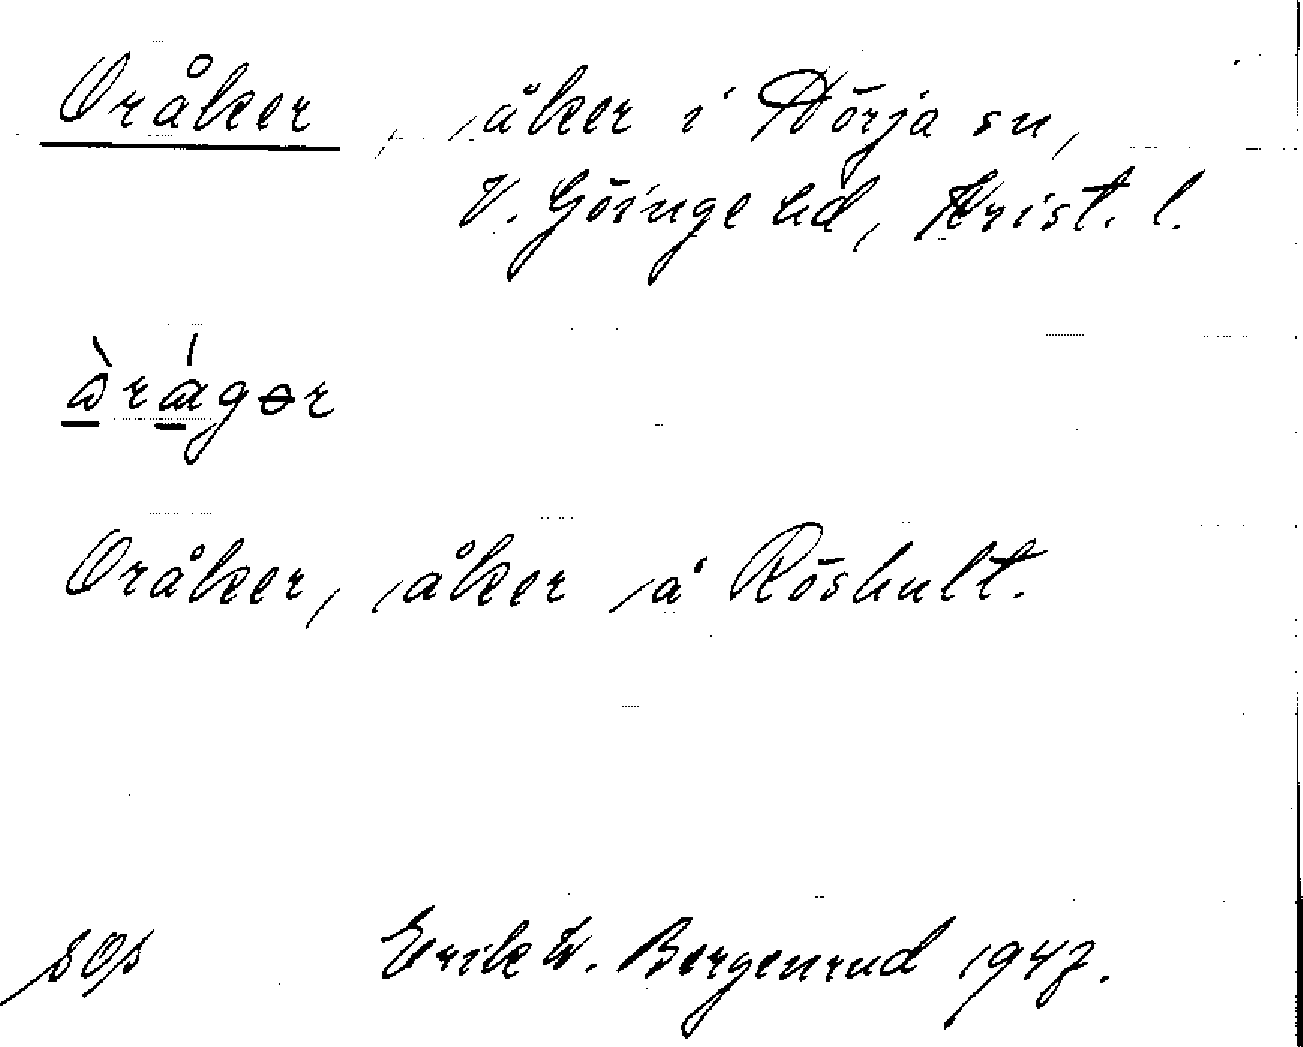 Oråker, åker i Nörja sn,
V. Göinge hd, Krist. l.
òrágər
Oråker, åker å Röshult.
Erik W. Bergenrud 1947.